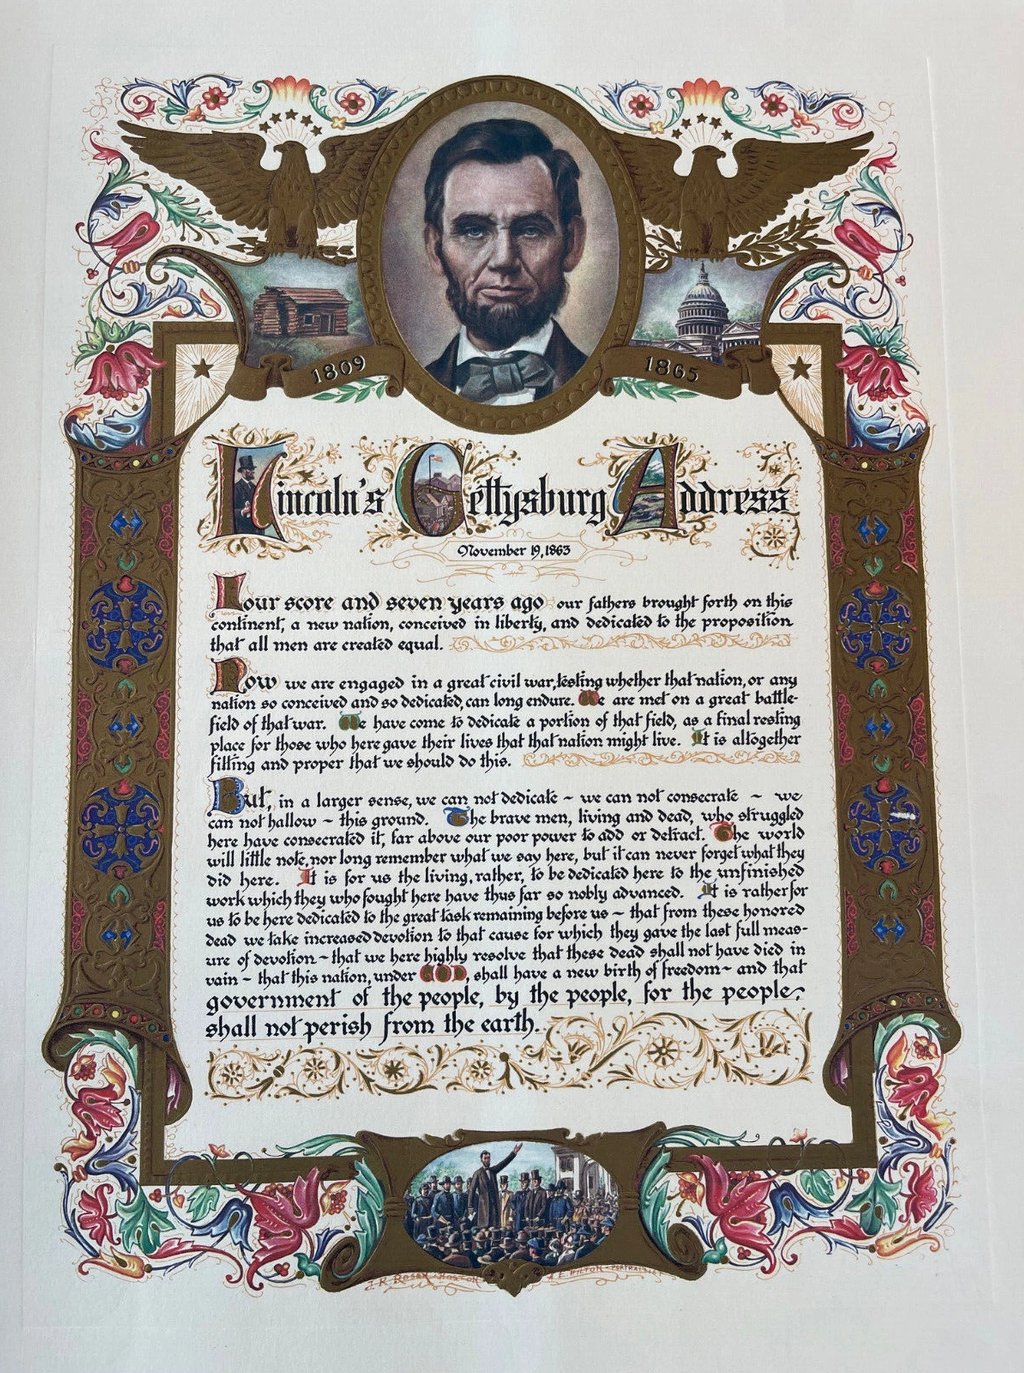 1809
1865
Lincoln's Gettysburg Address
November 19, 1863
Four score and seven years ago our fathers brought forth on this
continent, a new nation, conceived in liberty, and dedicated to the proposition
that all men are created equal.
Now we are engaged in a great civil war, testing whether that nation, or any
nation so conceived and so dedicated, can long endure. We are met on a great battle-
field of that war. We have come to dedicate a portion of that field, as a final resting
place for those who here gave their lives that that nation might live. It is altogether
fitting and proper that we should do this.
But, in a larger sense, we can not dedicate ~ we can not consecrate ~ we
can not hallow ~ this ground. The brave men, living and dead, who struggled
here have consecrated it, far above our poor power to add or detract. The world
will little note, nor long remember what we say here, but it can never forget what they
did here. It is for us the living, rather, to be dedicated here to the unfinished
work which they who fought here have thus far so nobly advanced. It is rather for
us to be here dedicated to the great task remaining before us ~ that from these honored
dead we take increased devotion to that cause for which they gave the last full meas-
ure of devotion ~ that we here highly resolve that these dead shall not have died in
vain ~ that this nation, under GOD, shall have a new birth of freedom ~ and that
government of the people, by the people, for the people,
shall not perish from the earth.
J. R. Rosen
A. E. Hilton - Portraits